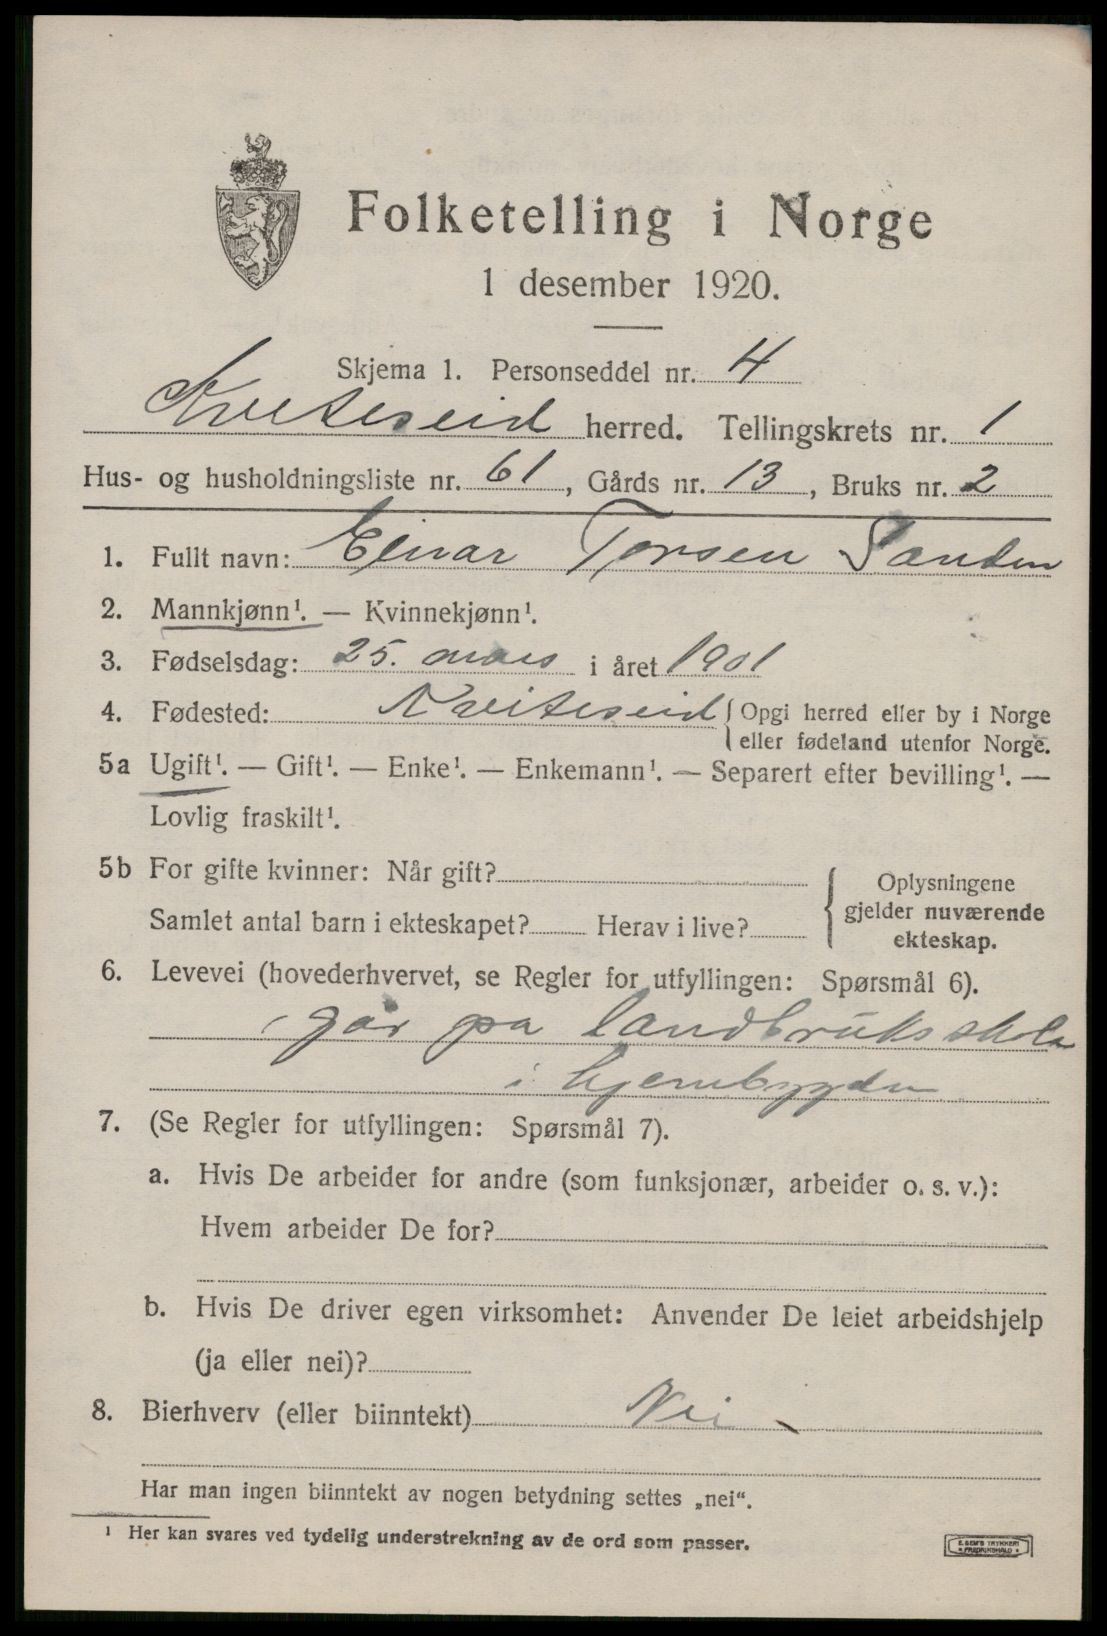 Folketelling i Norge
1 desember 1920.
Skjema 1. Personseddel nr. 4
Kviteseid herred. Tellingskrets nr. 1
Hus- og husholdningsliste nr. 61, Gårds nr. 13, Bruks nr. 2
1. Fullt navn: Einar Torsen Sanden
2. Mannkjønn¹. — Kvinnekjønn¹.
3. Fødselsdag: 25. mars i året 1901
4. Fødested: Kviteseid { Opgi herred eller by i Norge
eller fødeland utenfor Norge.
5a Ugift¹. — Gift¹. — Enke¹. — Enkemann¹. — Separert efter bevilling¹. —
Lovlig fraskilt¹.
5b For gifte kvinner: Når gift?
Samlet antal barn i ekteskapet? Herav i live?
{ Oplysningene
gjelder nuværende
ekteskap.
6. Levevei (hovederhvervet, se Regler for utfyllingen: Spørsmål 6).
går på landbruksskole
i
7. (Se Regler for utfyllingen: Spørsmål 7).
a. Hvis De arbeider for andre (som funksjonær, arbeider o. s. v.):
Hvem arbeider De for?
b. Hvis De driver egen virksomhet: Anvender De leiet arbeidshjelp
(ja eller nei)?
8. Bierhverv (eller biinntekt) Nei
Har man ingen biinntekt av nogen betydning settes „nei“.
¹ Her kan svares ved tydelig understrekning av de ord som passer.
E. SEM'S TRYKKERI
* FREDRIKSHALD *